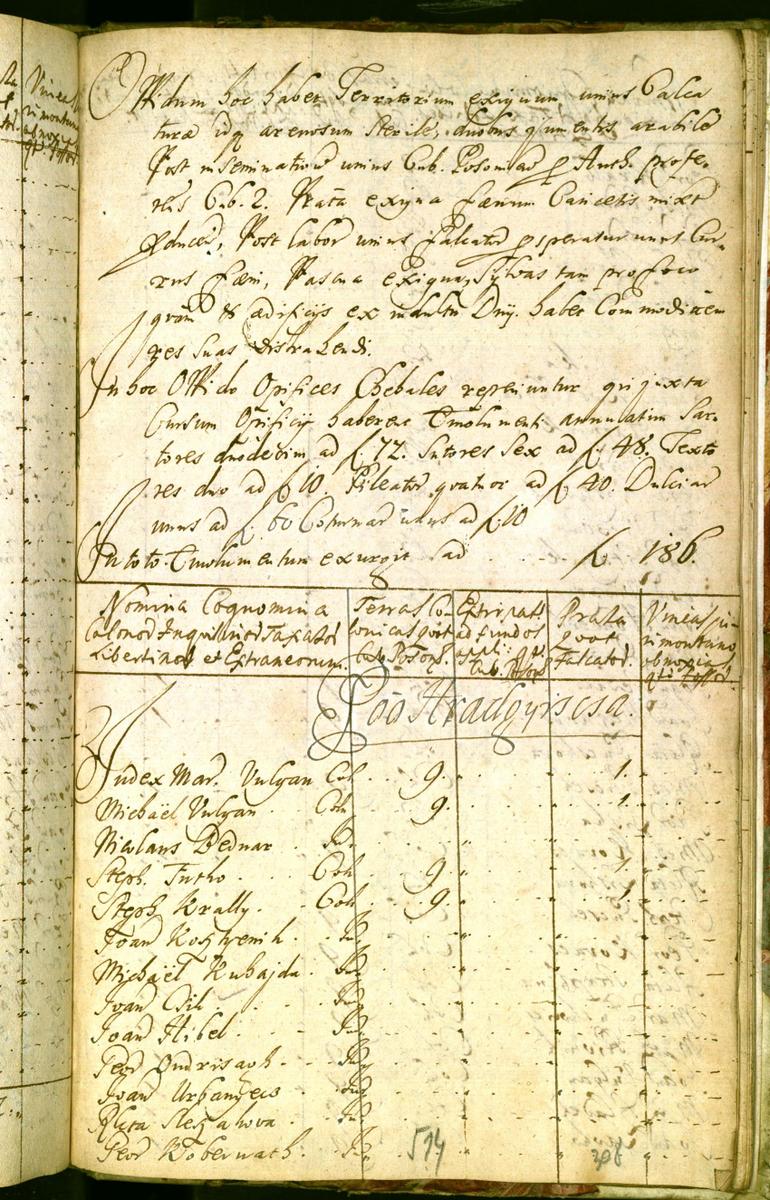 Oppidum hoc habet Territorium exiguum, unius Calca
turæ idq arenosum sterile, duobus jumentis arabile
Post inseminationem unius Cub. Poson ad Auth. profe-
rens Cub. 2. Prata exigua fœnum Caricetis mixt
Post labor unius falcator speratur unus Cur-
rus fœni, Pascua exigua, Sylvas tam pro foco
quam & ædificijs ex indultu Dnij. habet Commoditatem
res suas distrahendi.
In hoc Oppido Opifices Chehales reperiuntur qui juxta
Cursum Opificij haberent Emolumenti annuatim Sar-
tores duodecim ad f. 72. Sutores Sex ad f. 48. Texto
res duo ad f 10. Pileator quatuor ad f 40. Dulciar
unus ad f. 60 Coturnar unus ad f. 10
In toto Emolumentum exurgit ad . . . f. 186.
Nomina Cognomina
Colonor Inquilinor Taxator
Libertinor et Extraneorum.
Terras Co-
lonicas quot
Cub. Poson.
Extirpat
ad fundos
appli. qt.
Cub. Poson
Prata
quot
Falcator.
Vineas pri-
montano
obnoxias
qt. Fossor.
Poss Hradgyiscsa.
Judex Mar. Vulgan Col. 9. " 1. "
Michael Vulgan Col. 9. " 1. "
Nicolaus Bednar Inq.
Steph. Jutho Col. 9. " 1. "
Steph. Krally. Col. 9. " 1. "
Joan Kosztrenih. Inq
Michael Kubajda. Inq
Joan Cili. Inq
Joan Hibel. Inq
Geor Ondrisagh. Inq
Joan Urbanyecs Inq
Relicta Slezakova Inq
Geor Dobernath. Inq
514